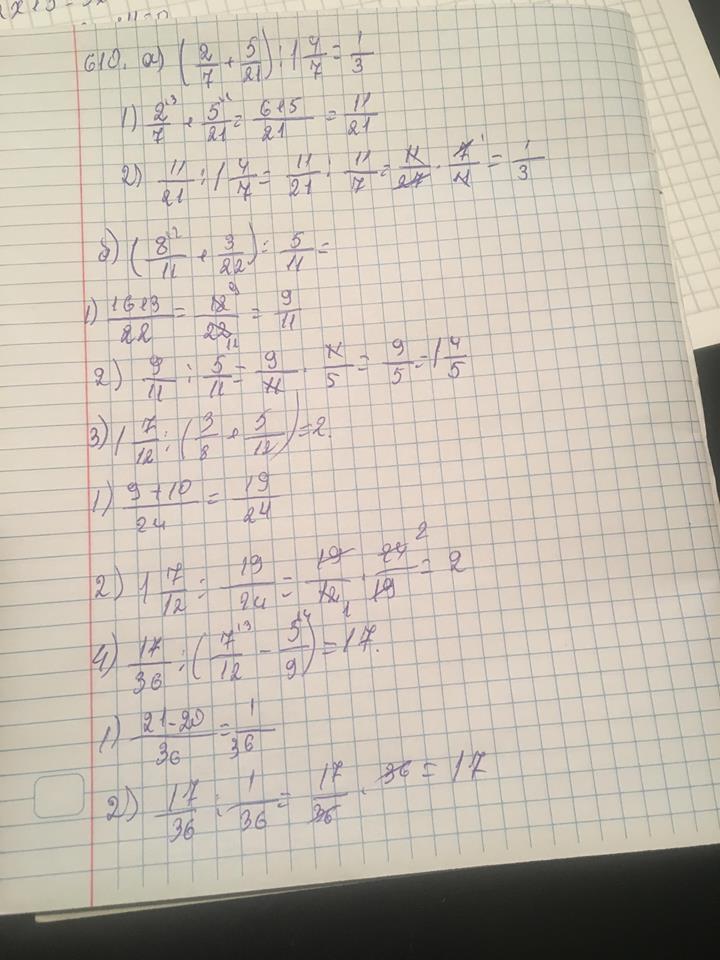 610. а) (2/7 + 5/21) : 1 4/7 = 1/3
1) 2/7 + 5/21 = 6+5/21 = 11/21
2) 11/21 : 1 4/7 = 11/21 : 11/7 = 11/21 · 7/11 = 1/3
б) (8/11 + 3/22) : 5/11 =
1) 16+3/22 = 18/22 = 9/11
2) 9/11 : 5/11 = 9/11 · 11/5 = 9/5 = 1 4/5
3) 1 7/12 : (3/8 + 5/12) = 2.
1) 9+10/24 = 19/24
2) 1 7/12 : 19/24 = 19/12 · 24/19 = 2
4) 17/36 : (7/12 - 5/9) = 17.
1) 21-20/36 = 1/36
2) 17/36 : 1/36 = 17/36 · 36 = 17